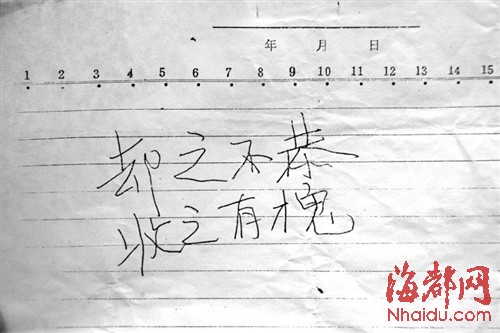 年 月 日
1 2 3 4 5 6 7 8 9 10 11 12 13 14 15
却之不恭
收之有槐
海都网
Nhaidu.com